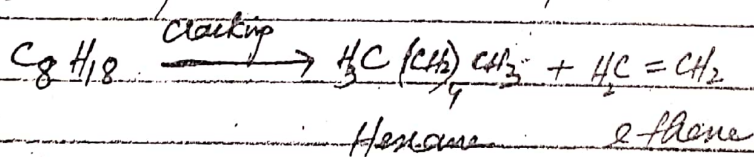 C₈H₁₈ —Cracking→ H₃C(CH₂)₄CH₃ + H₂C = CH₂
Hexane ethene